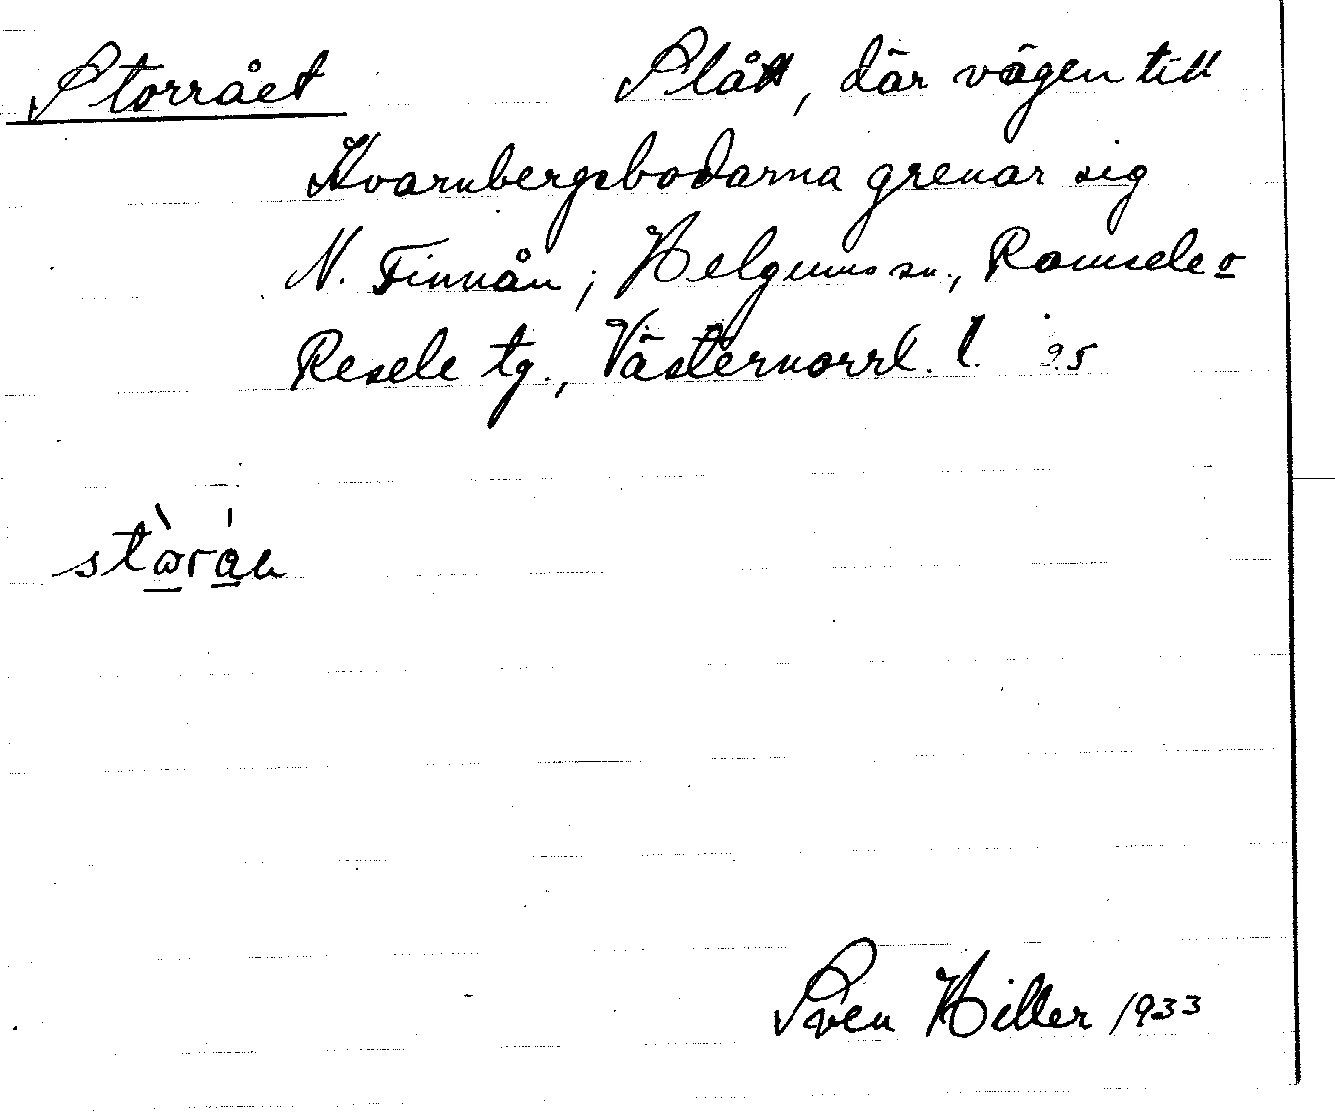 Storrået Slått, där vägen till
Kvarnbergsbodarna grenar sig
N. Finnån; Helgums sn., Ramsele o
Resele tg., Västernorrl. l. 95
Sven Hiller 1933